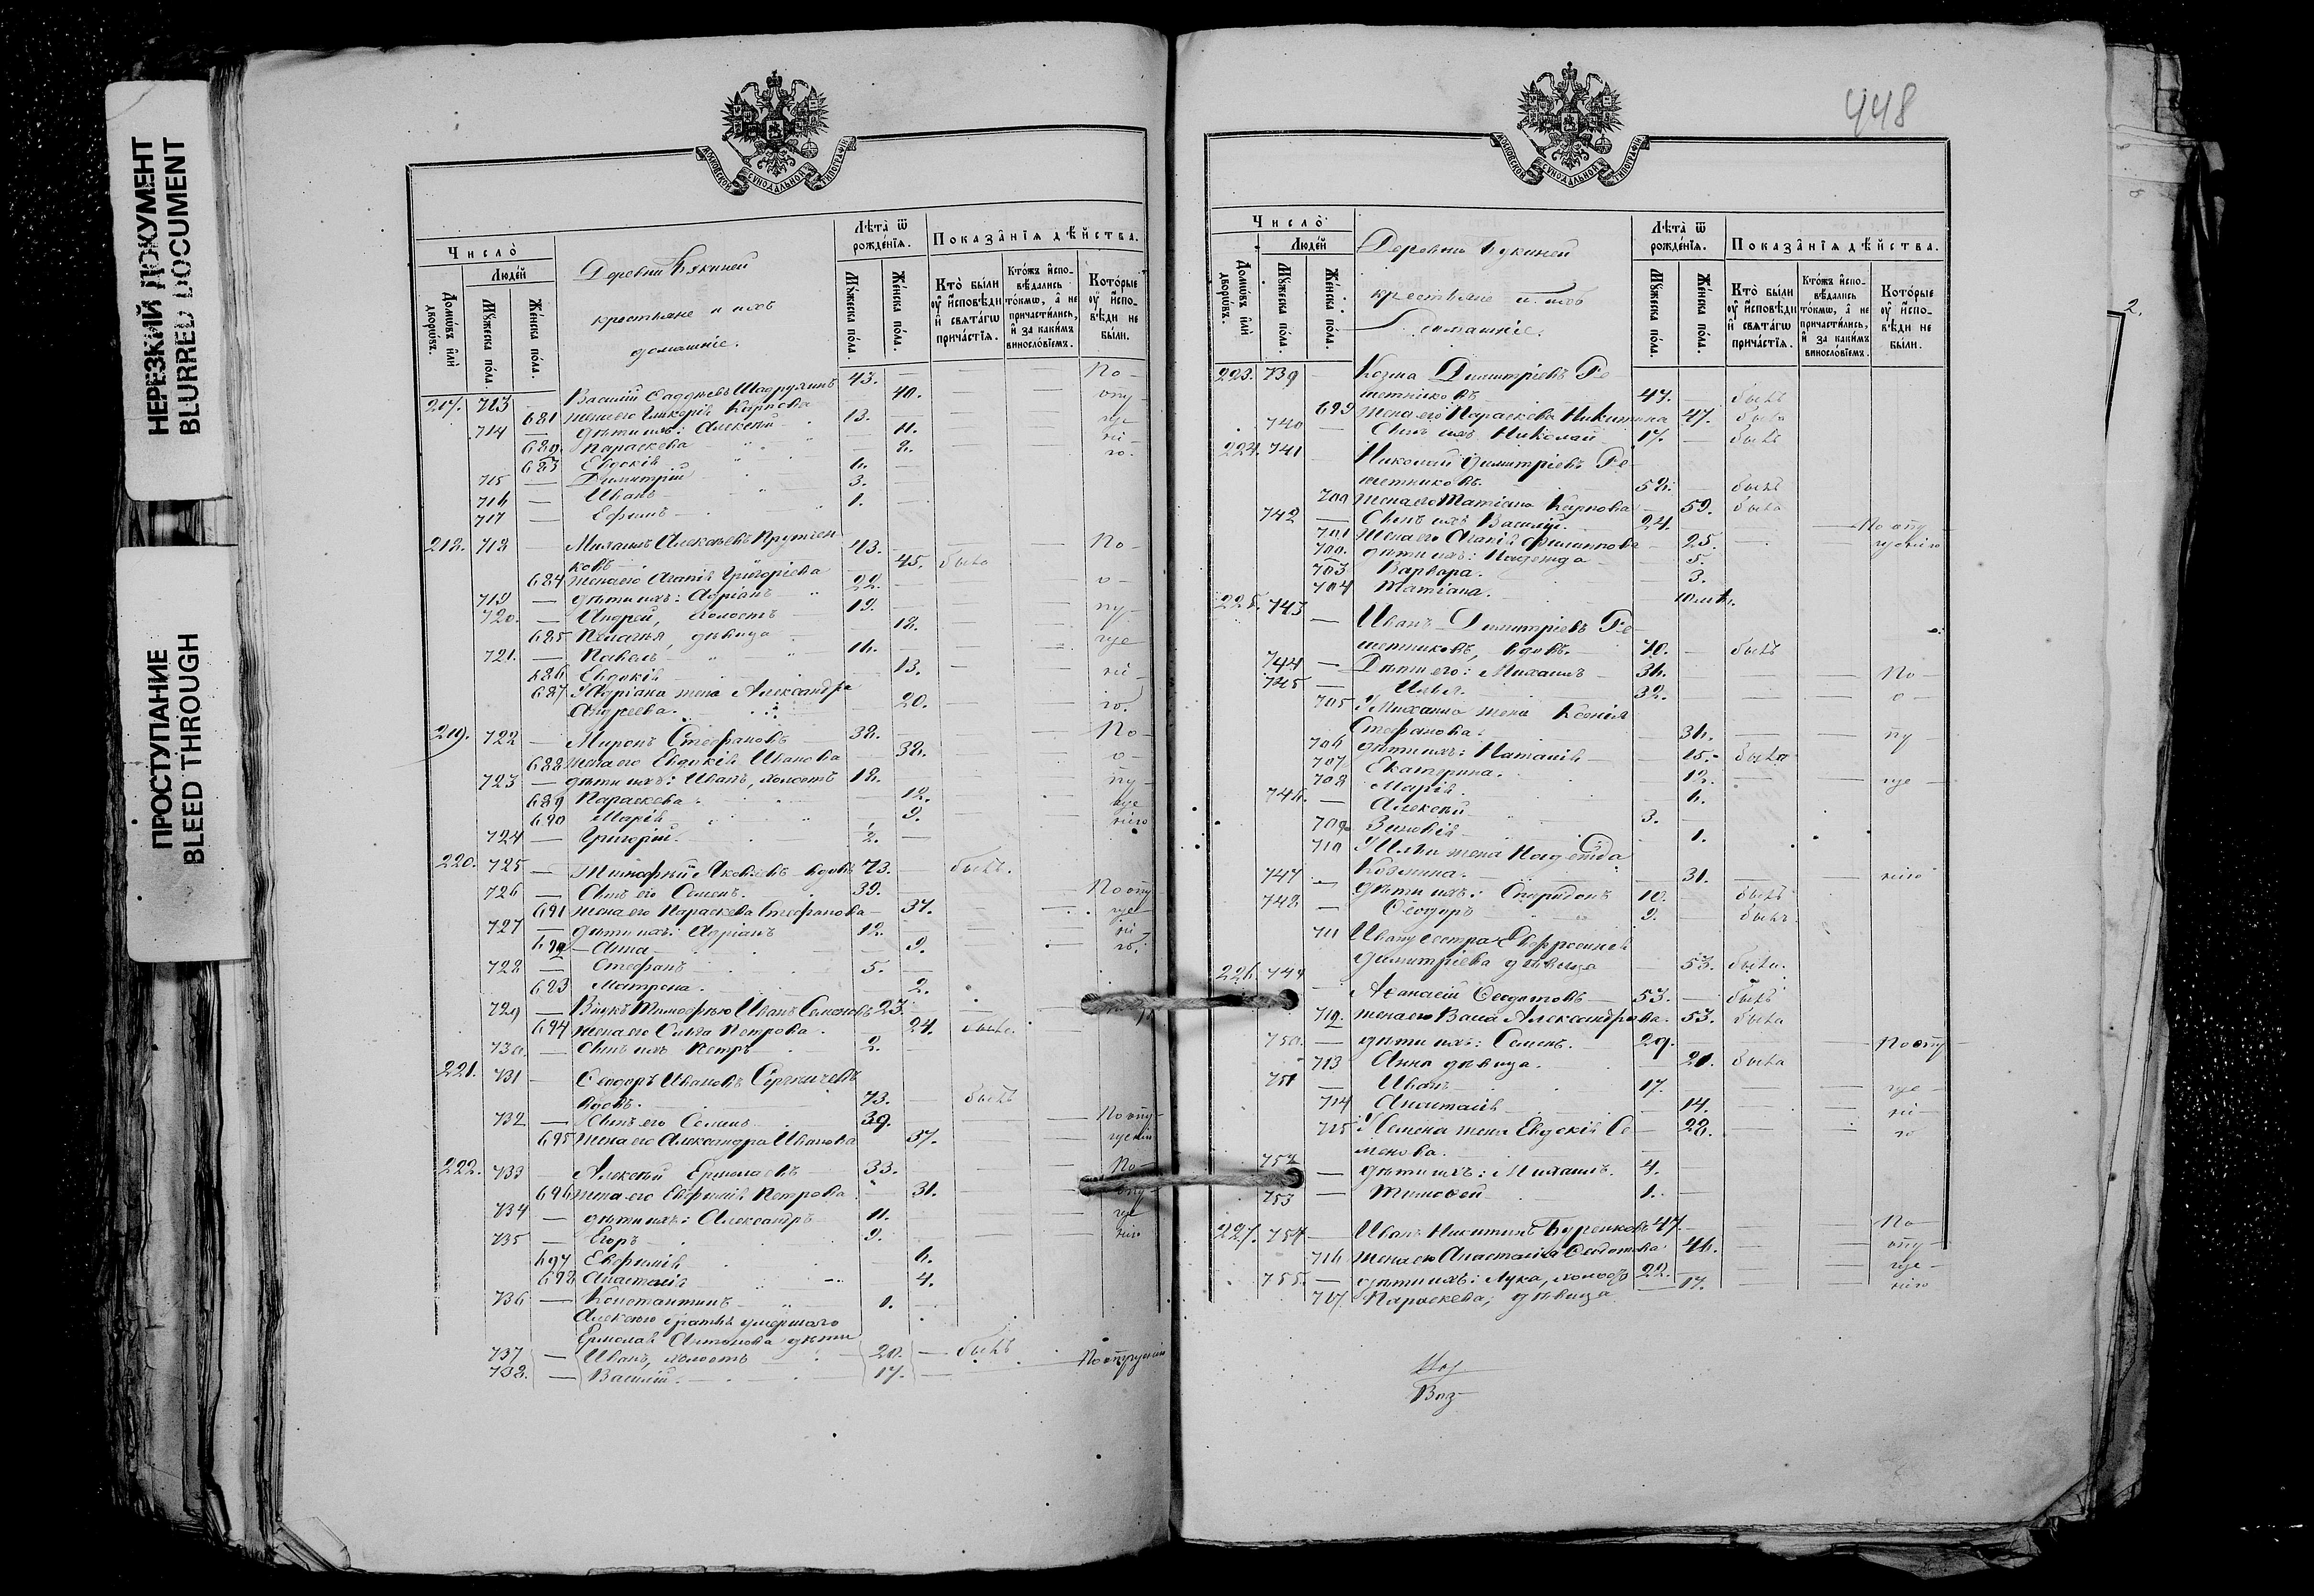 НЕРЕЗКИЙ ДОКУМЕНТ
BLURRED DOCUMENT
ПРОСТУПАНИЕ
BLEED THROUGH
МОСКОВСКОЙ СУНОДАЛЬНОЙ ТИПОГРАФІИ
Число̀
Люде́й
Домѡ́въ и҆лѝ дворѡ́въ.
Мꙋ́жеска по́ла.
Же́нска по́ла.
крестьяне и ихъ
домашніе.
Лѣ́та ѿ рожде́нїѧ.
Мꙋ́жеска по́ла.
Же́нска по́ла.
Показа̂нїѧ дѣ́йства.
Кто̀ бы́ли ᲂу҆ и҆́сповѣди и҆ свѧта́гѡ прича́стїѧ.
Кто́жъ и҆спо-вѣ́дались то́кмѡ, а҆ не причасти́лись, и҆ за каки́мъ виносло́вїемъ.
Кото́рые ᲂу҆ и҆́спо-вѣди не бы́ли.
217. 713 — Василій 43. — По-
681 жена его 40. опу-
714 — дѣти ихъ: Алексѣй 13. ще
682 Параскева 11. ні-
683 Евдокія 8. ю.
715 — Димитрій 6.
716 — Иванъ 3.
717 — Ефимъ 1.
218. 718 — Михаилъ Алексѣевъ 43. По-
684 жена его Агапія Григоріева 45. была
719 — дѣти ихъ: Адріанъ 22. о-
720. — Андрей, холостъ 19. пу-
685 Пелагея, дѣвица 18. ще
721. — Павелъ 16.
686 Евдокія 13. ні-
687 У Адріана жена Александра
Андреева. 20. ю.
219. 722 — Миронъ Стефановъ 38. По-
688 жена его Евдокія Иванова 38. о-
723 — дѣти ихъ: Иванъ, холостъ 18. пу-
689 Параскева 12. ще
690 Марія 9. нію
724 — Григорій. 2.
220. 725 — Тимофей Яковлевъ вдовъ 73. былъ.
726 — Сынъ его Семенъ. 39. По опу
691 жена его Параскева Стефанова 37. ще
727 — дѣти ихъ: Адріанъ 12. ні
692 Анна 9. ю.
728 — Стефанъ 5.
693 Матрона. 2.
729 — Внукъ Тимофею Иванъ Семеновъ 23.
694 жена его Ольга Петрова. 24. была.
730. — Сынъ ихъ Петръ 2.
221. 731 — Ѳеодоръ Ивановъ
вдовъ. 73. былъ
732 — Сынъ его Семенъ 39. По опу-
695 жена его Александра Иванова 37. щенію
222. 733 — Алексѣй Ермолаевъ 33. По-
696 жена его Евфимія Петрова 31. опу-
734 — дѣти ихъ: Александръ 11. ще
735 — Егоръ 9. нію
697 Евфимія 6.
698 Анастасія 4.
736 — Константинъ 1.
Ермолая Антонова дѣти
737 — Иванъ, холостъ 20. былъ
738. — Василій. 17. По опущенію
448
МОСКОВСКОЙ СУНОДАЛЬНОЙ ТИПОГРАФІИ
Число̀
Люде́й
Домѡ́въ и҆лѝ дворѡ́въ.
Мꙋ́жеска по́ла.
Же́нска по́ла.
крестьяне и ихъ
домашніе.
Лѣ́та ѿ рожде́нїѧ.
Мꙋ́жеска по́ла.
Же́нска по́ла.
Показа̂нїѧ дѣ́йства.
Кто̀ бы́ли ᲂу҆ и҆́сповѣди и҆ свѧта́гѡ прича́стїѧ.
Кто́жъ и҆спо-вѣ́дались то́кмѡ, а҆ не причасти́лись, и҆ за каки́мъ виносло́вїемъ.
Кото́рые ᲂу҆ и҆́спо-вѣди не бы́ли.
223. 739 — Козма Димитріевъ Ре
шетниковъ 47. былъ
699 жена его Параскева Никитина 47. была
740 — Сынъ ихъ Николай 17. былъ
224. 741 — Николай Димитріевъ Ре-
шетниковъ. 58. былъ
700 жена его Татіана Карпова 59. была
742 — Сынъ ихъ Василій. 24. По опу
701 жена его Агапія Филиппова 25. щенію
702. дѣти ихъ: Надежда 5.
703 Варвара. 3.
704 Татіана.
225. 743 — Иванъ Димитріевъ Ре-
шетниковъ, вдовъ. 70. былъ
744 — Дѣти его: Михаилъ 36. По
745 — Илья. 32. о
705 У Михаила жена Ксенія
Стефанова. 36. пу
706 дѣти ихъ: Наталія 15. была
707 Екатерина. 12. ще
708 Марія. 6.
746. — Алексѣй 3.
709 Зиновія 1.
710 У Ильи жена Надежда
Козмина. 31. нію
747 — дѣти ихъ: Спиридонъ 10. былъ
748 — Ѳеодоръ 9. былъ.
711 Ивану сестра Евфросинія
Димитріева дѣвица 53. была.
226. 749 — Аѳанасій Ѳедотовъ 53. былъ
712. жена его Васса Александрова. 53. была
750. — дѣти ихъ: Семенъ. 29. По опу
713 Анна дѣвица. 20. была
751 — Иванъ 17. ще
714 Анастасія 14. ні
715 У Семена жена Евдокія Се- 28. ю
менова.
752 — дѣти ихъ: Михаилъ. 4.
753 — Тимоѳей 1.
227. 754 Иванъ Никитинъ Буренковъ 47. По
716 жена его Анастасія Ѳедотова 46. опу
755. — дѣти ихъ: Лука, холостъ 22. ще
717. Параскева, дѣвица 17. нію
2.